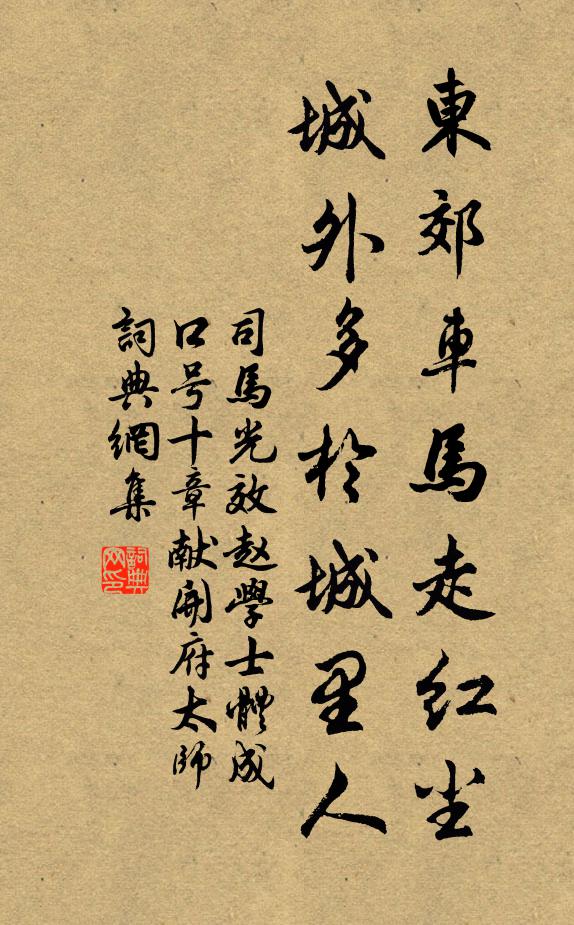 東郊車馬走红尘
城外多於城里人
司馬光效赵學士體成
口号十章献開府太師
詞典網集
詞典网印